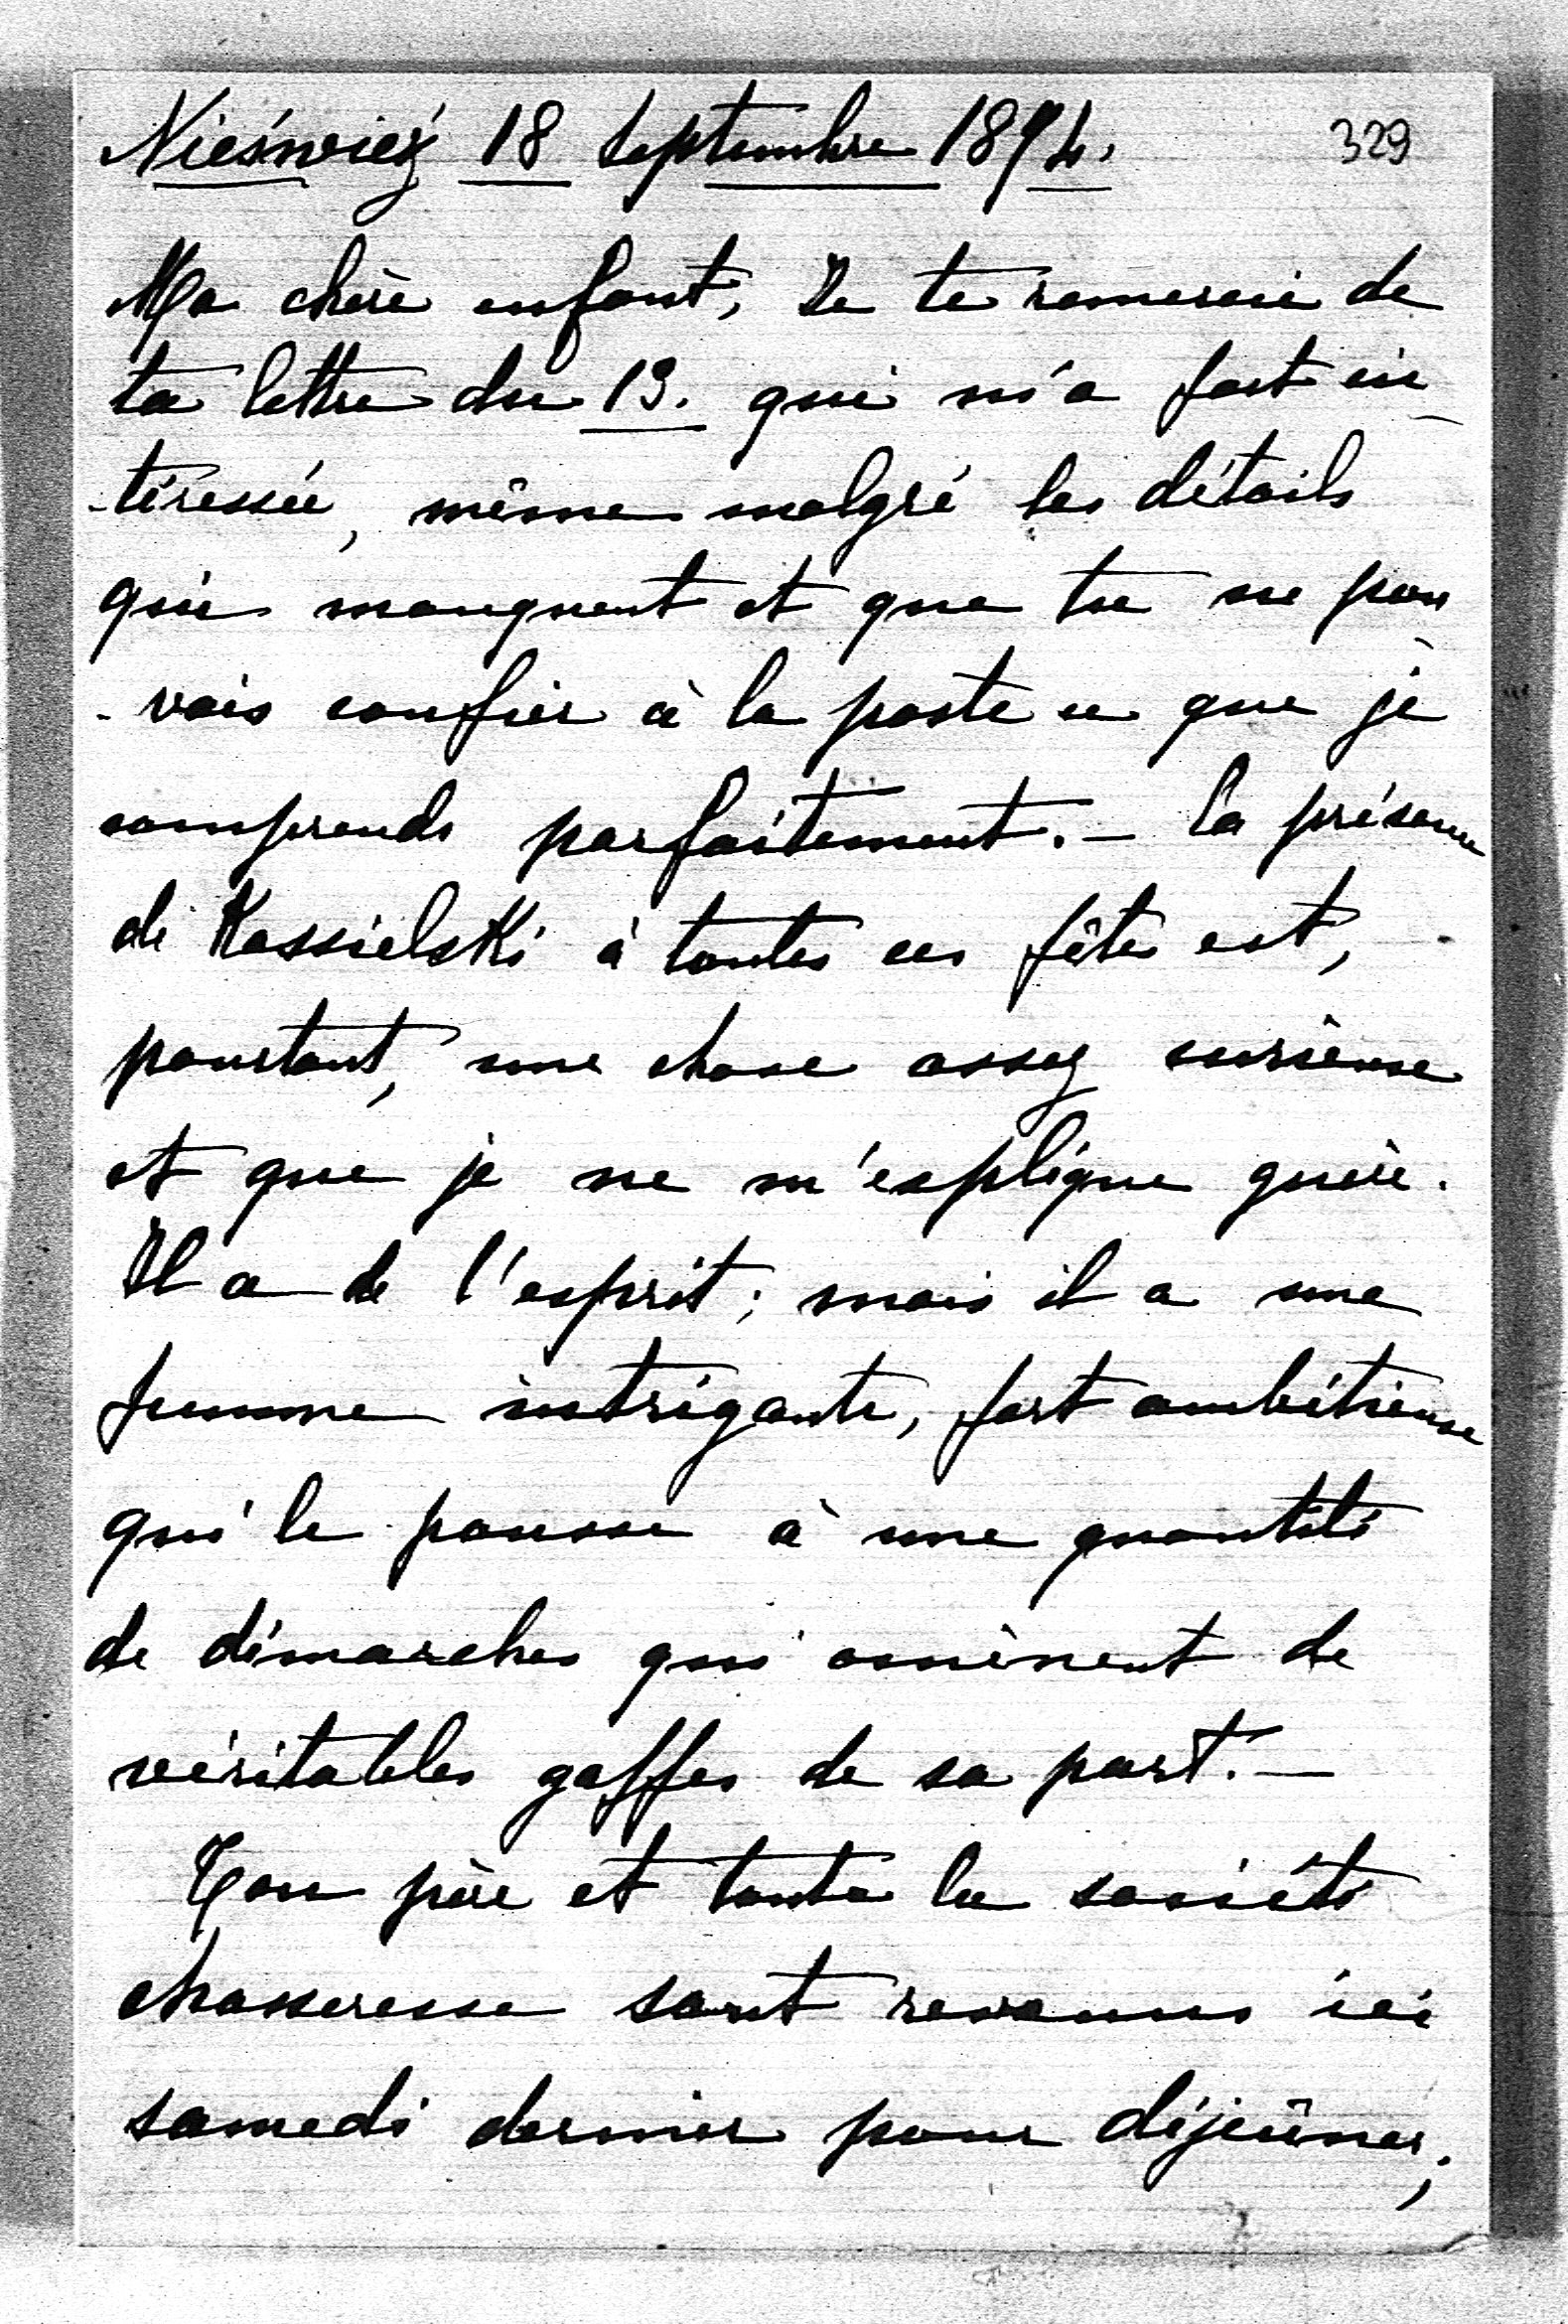 Nieśwież 18 Septembre 1894. 329
Ma chère enfant, Je te remercie de
ta lettre du 13. qui m'a fort in
-téressée, même malgré les détails
qui manquent et que tu ne pou
-vais confier à la poste ce que je
comprends parfaitement. — La présence
de Kossielski à toutes ces fêtes est,
pourtant, une chose assez curieuse
et que je ne m'explique guère.
Il a de l'esprit; mais il a une
femme intrigante, fort ambitieuse
qui le pousse à une quantité
de démarches qui amènent de
véritables gaffes de sa part. —
Ton père et toute la société
chasseresse sont revenus ici
samedi dernier pour déjeûner;